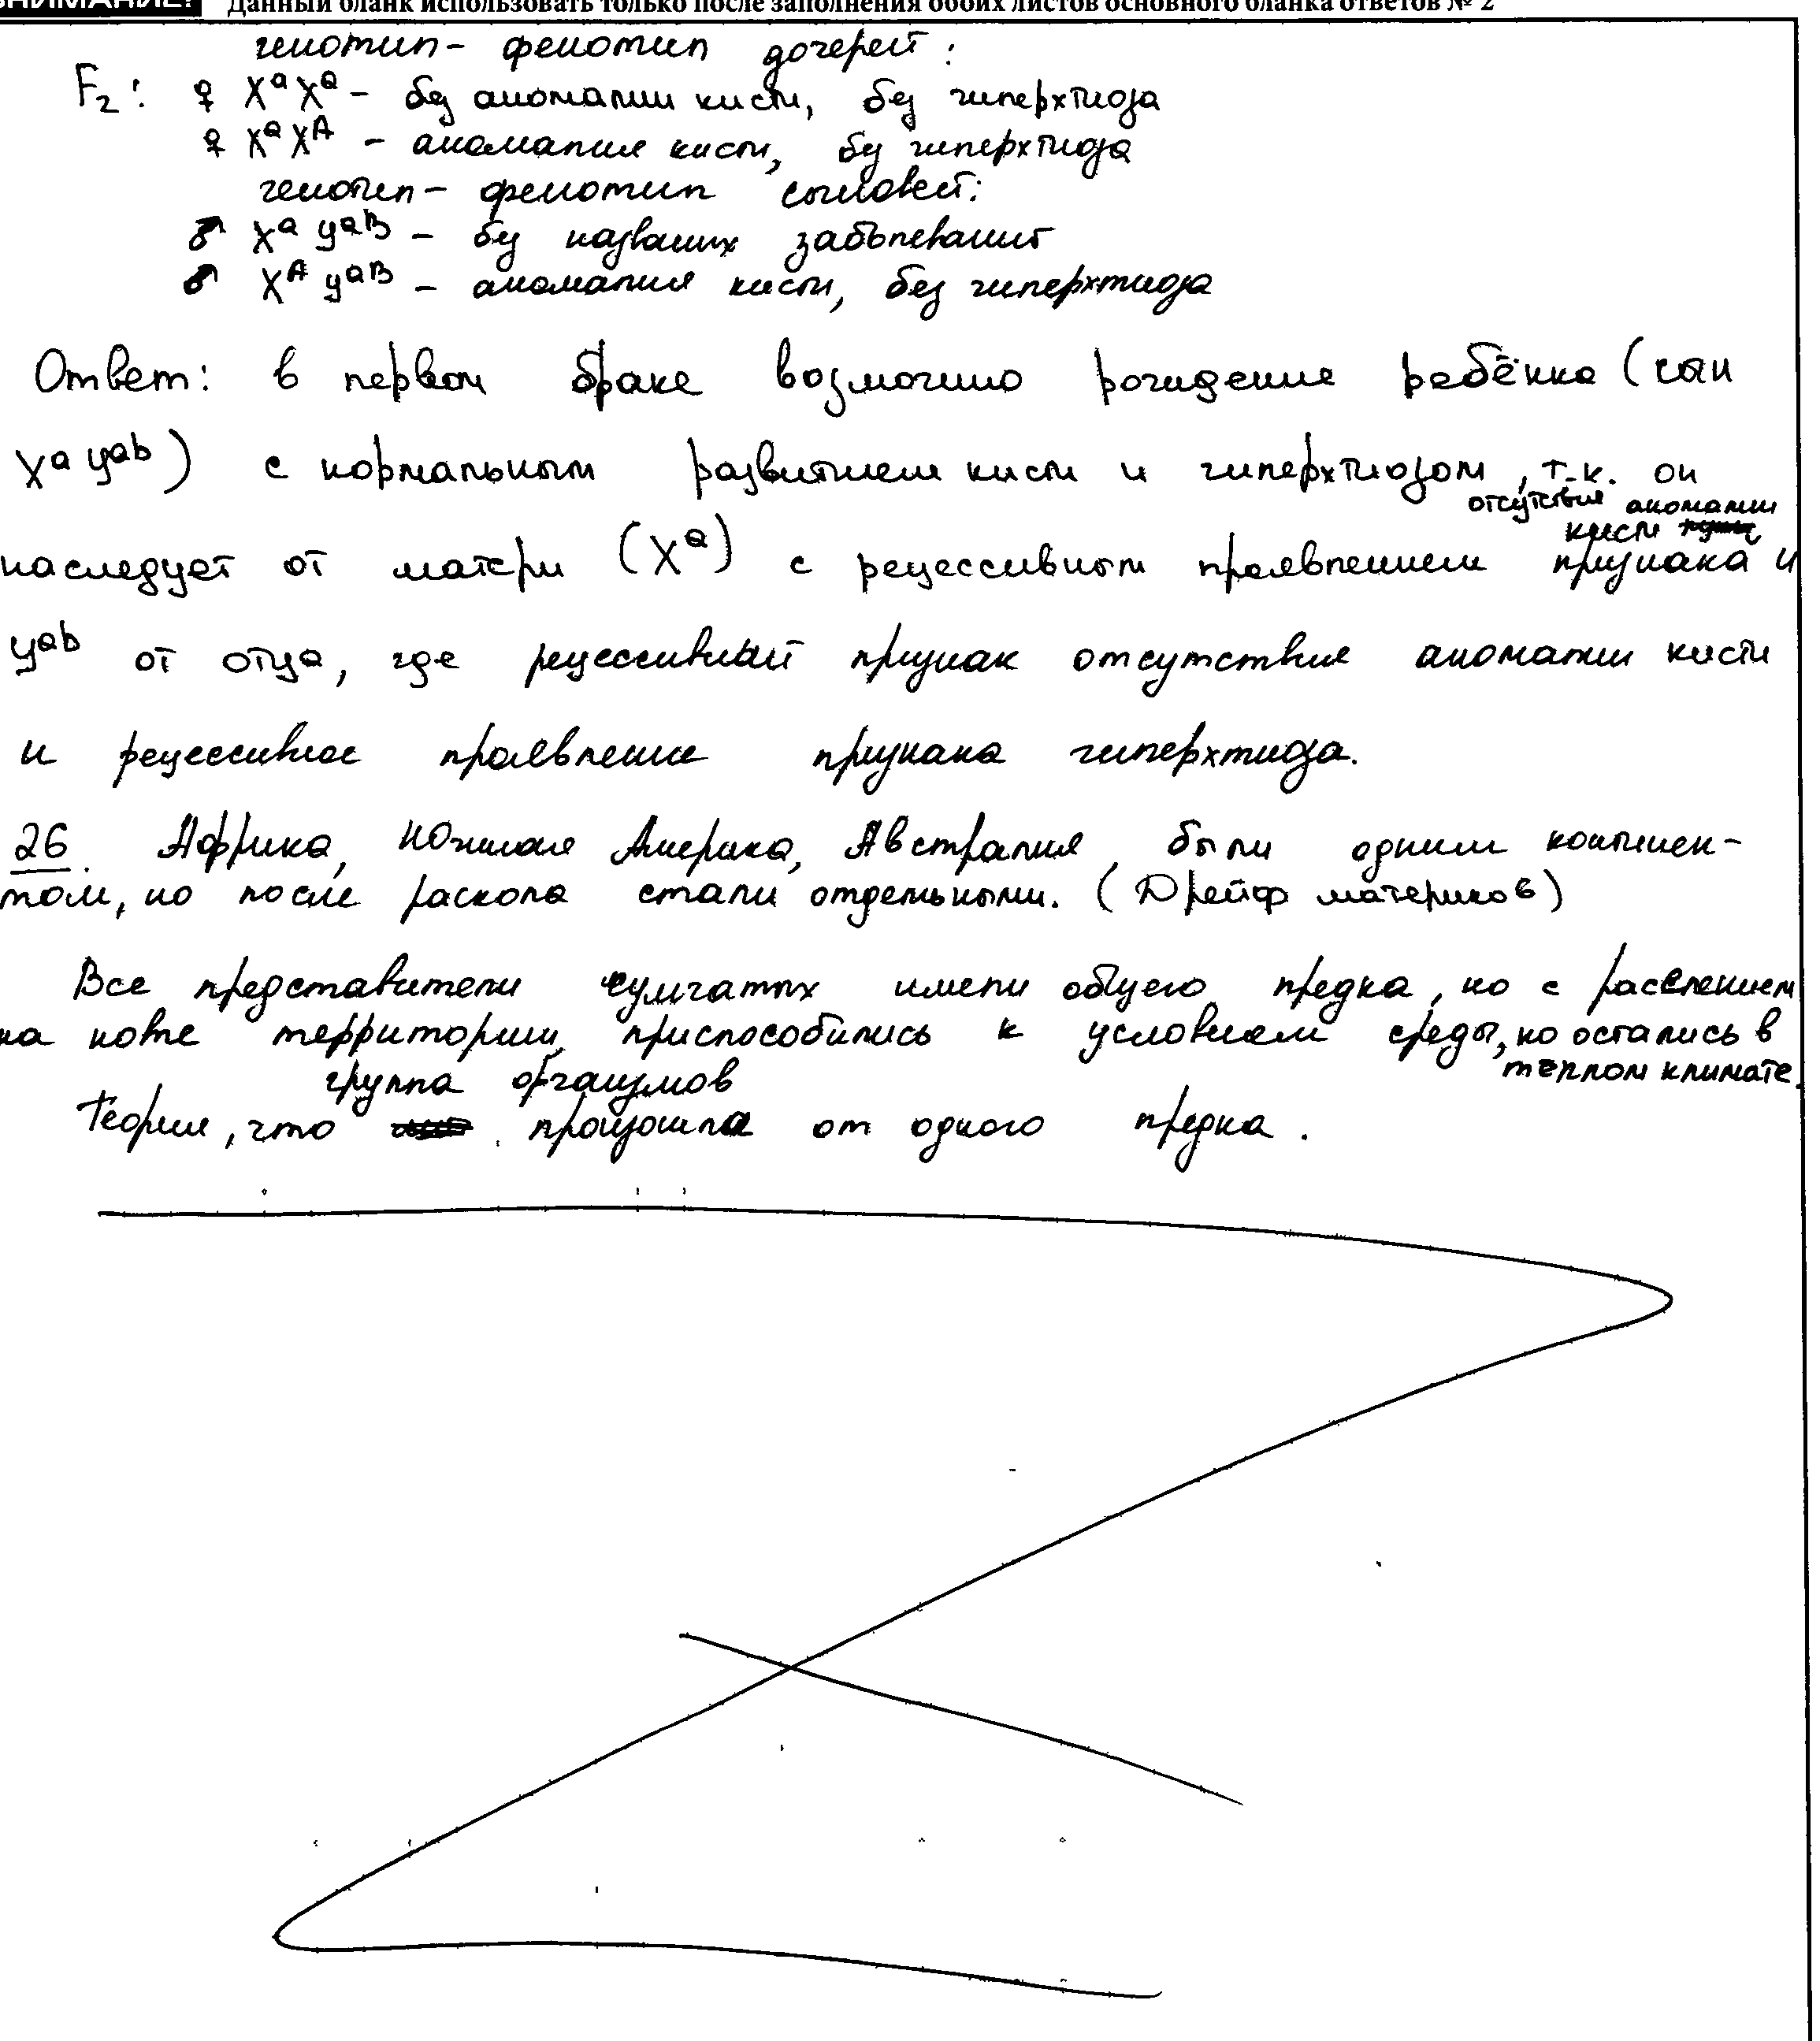 ВНИМАНИЕ! Данный бланк использовать только после заполнения обоих листов основного бланка ответов № 2
генотип - фенотип дочерей:
F₂: ♀ XᵃXᵃ - без аномалии кисти, без гиперхтиоза
♀ XᵃXᴬ - аномалия кисти, без гиперхтиоза
генотип - фенотип сыновей:
♂ Xᵃ yᵃᴮ - без назвааных заболеваний
♂ Xᴬ yᵃᴮ - аномалия кисти, без гиперхтиоза
Ответ: в первом браке возможно рождение ребёнка (сын
Xᵃ yᵃᵇ) с нормальным развитием кисти и гиперхтиозом, т.к. он
отсутствие аномалии
кисти
наследует от матери (Xᵃ) с рецессивным проявлением признака и
yᵃᵇ от отца, где рецессивный признак отсутствия аномалии кисти
и рецессивное проявление признака гиперхтиоза.
26. Африка, Южная Америка, Австралия, были одним континен-
том, но после раскола стали отдельными. (Дрейф материков)
Все представители сумчатых имели общего предка, но с расселением
на новые территории, приспособились к условиям среды, но остались в
тёплом климате.
группа организмов
Теория, что произошла от одного предка.